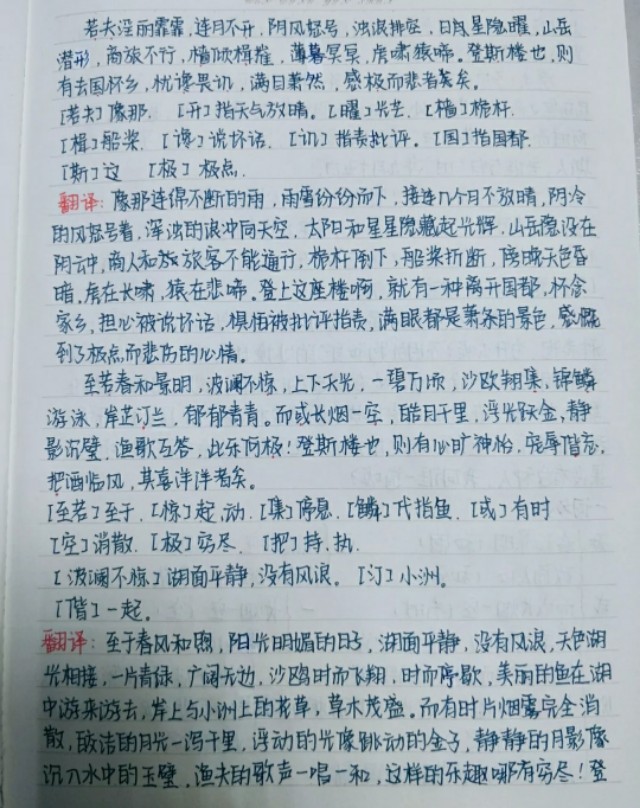 若夫淫雨霏霏，连月不开，阴风怒号，浊浪排空，日月星隐曜，山岳
潜形，商旅不行，樯倾楫摧，薄暮冥冥，虎啸猿啼。登斯楼也，则
有去国怀乡，忧谗畏讥，满目萧然，感极而悲者矣。
[若夫]像那. [开]指天气放晴。[曜]光芒. [樯]桅杆.
[楫]船桨. [谗]说坏话. [讥]指责批评。[国]指国都.
[斯]这 [极]极点.
翻译：像那连绵不断的雨，雨雪纷纷而下，接连几个月不放晴，阴冷
的风怒号着，浑浊的浪冲向天空，太阳和星星隐藏起光辉，山岳隐没在
阴云中，商人和旅客不能通行，桅杆倒下，船桨折断，傍晚天色昏
暗，虎在长啸，猿在悲啼。登上这座楼啊，就有一种离开国都，怀念
家乡，担心被说坏话，惧怕被批评指责，满眼都是萧条的景色，感慨
到了极点而悲伤的心情。
至若春和景明，波澜不惊，上下天光，一碧万顷，沙欧翔集，锦鳞
游泳，岸芷汀兰，郁郁青青。而或长烟一空，皓月千里，浮光跃金，静
影沉璧，渔歌互答，此乐何极！登斯楼也，则有心旷神怡，宠辱偕忘，
把酒临风，其喜洋洋者矣。
[至若]至于. [惊]起，动. [集]停息. [鳞]代指鱼. [或]有时
[空]消散. [极]穷尽. [把]持，执.
[波澜不惊]湖面平静，没有风浪。 [汀]小洲。
[偕]一起。
翻译：至于春风和煦，阳光明媚的日子，湖面平静，没有风浪，天色湖
光相接，一片青绿，广阔无边，沙鸥时而飞翔，时而停歇，美丽的鱼在湖
中游来游去，岸上与小洲上的花草，草木茂盛。而有时片烟雾完全消
散，皎洁的月光一泻千里，浮动的光像跳动的金子，静静的月影像
沉入水中的玉璧，渔夫的歌声一唱一和，这样的乐趣哪有穷尽！登